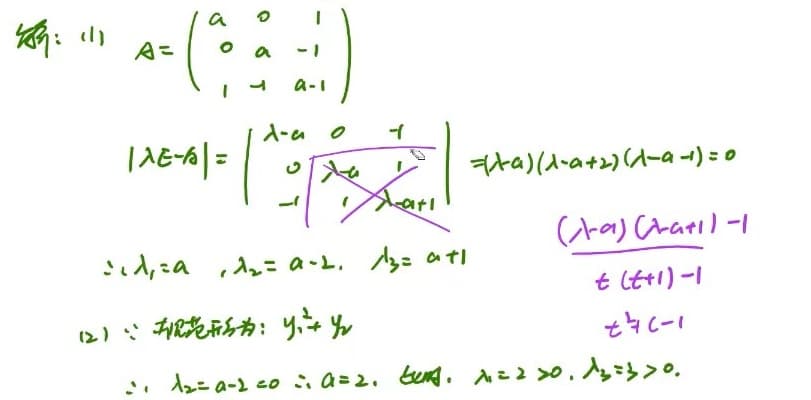 解: (1) A = ( a 0 1
0 a -1
1 -1 a-1 )
|λE-A| = | λ-a 0 -1
0 λ-a 1
-1 1 λ-a+1 | =(λ-a)(λ-a+2)(λ-a-1)=0
(λ-a)(λ-a+1)-1
∴ λ₁=a , λ₂=a-2. λ₃=a+1
t(t+1)-1
(2) ∵ 规范形为: y₁²+y₂
t²+t-1
∴ λ₂=a-2=0 ∴ a=2. 此时. λ₁=2>0. λ₃=3>0.